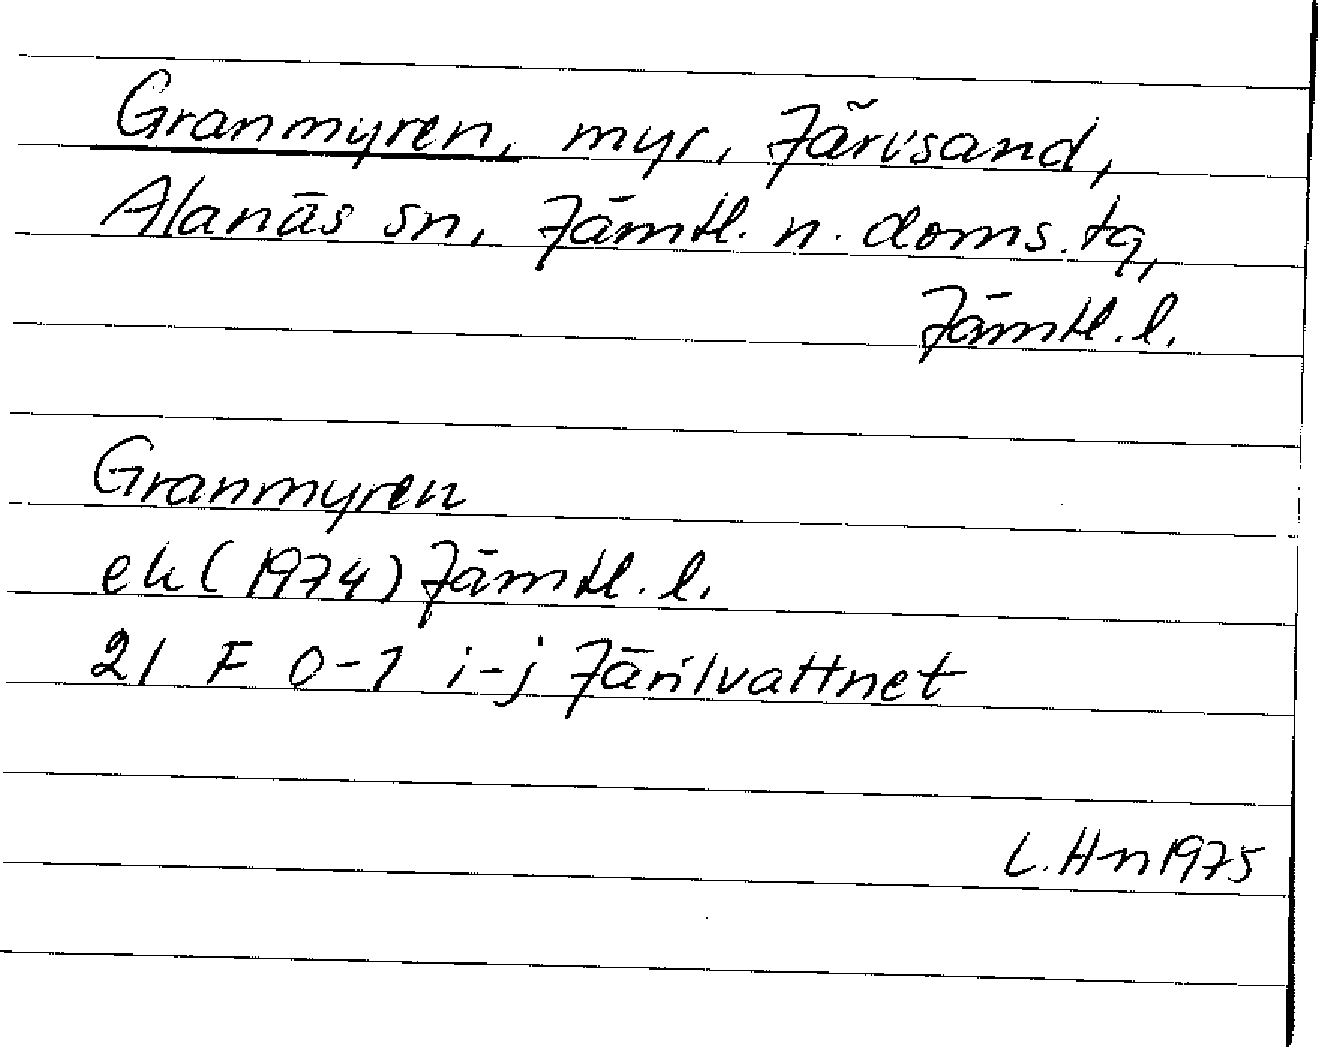 Granmyren, myr, Järvsand,
Alanäs sn, Jämtl. n. doms.tg,
Jämtl.l.
Granmyren
ek (1974) Jämtl.l.
21 F 0-1 i-j Järilvattnet
L.Hn 1975